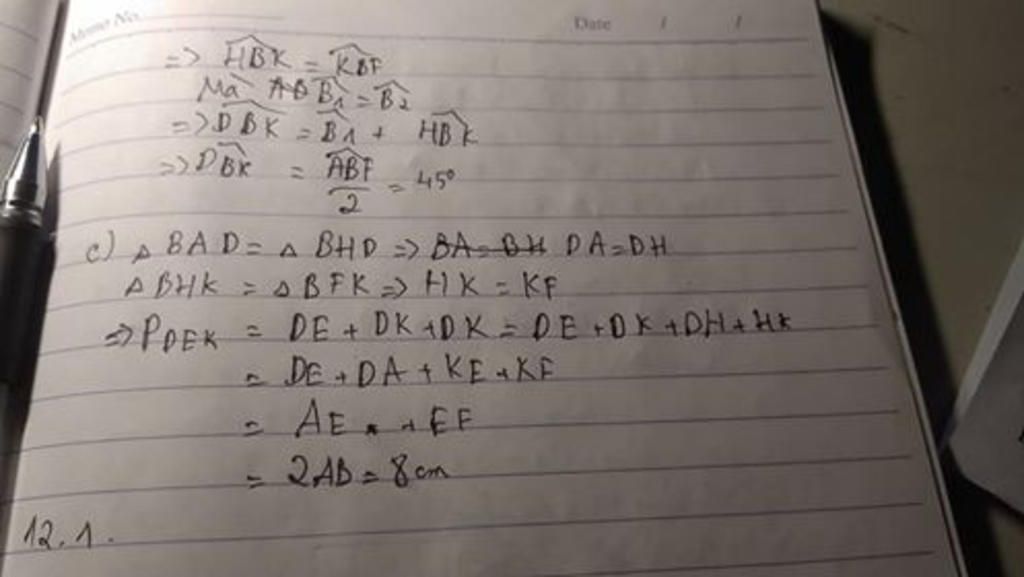 Memo No.
Date / /
=> HBK = KBF
Mà AB B1 = B2
=> DBK = B1 + HBK
=> DBK = ABF/2 = 45°
c) △ BAD = △ BHD => BA = BH DA = DH
△ BHK = △ BFK => HK = KF
=> PDEK = DE + DK + DK = DE + DK + DH + HK
= DE + DA + KE + KF
= AE + EF
= 2AB = 8cm
12.1.